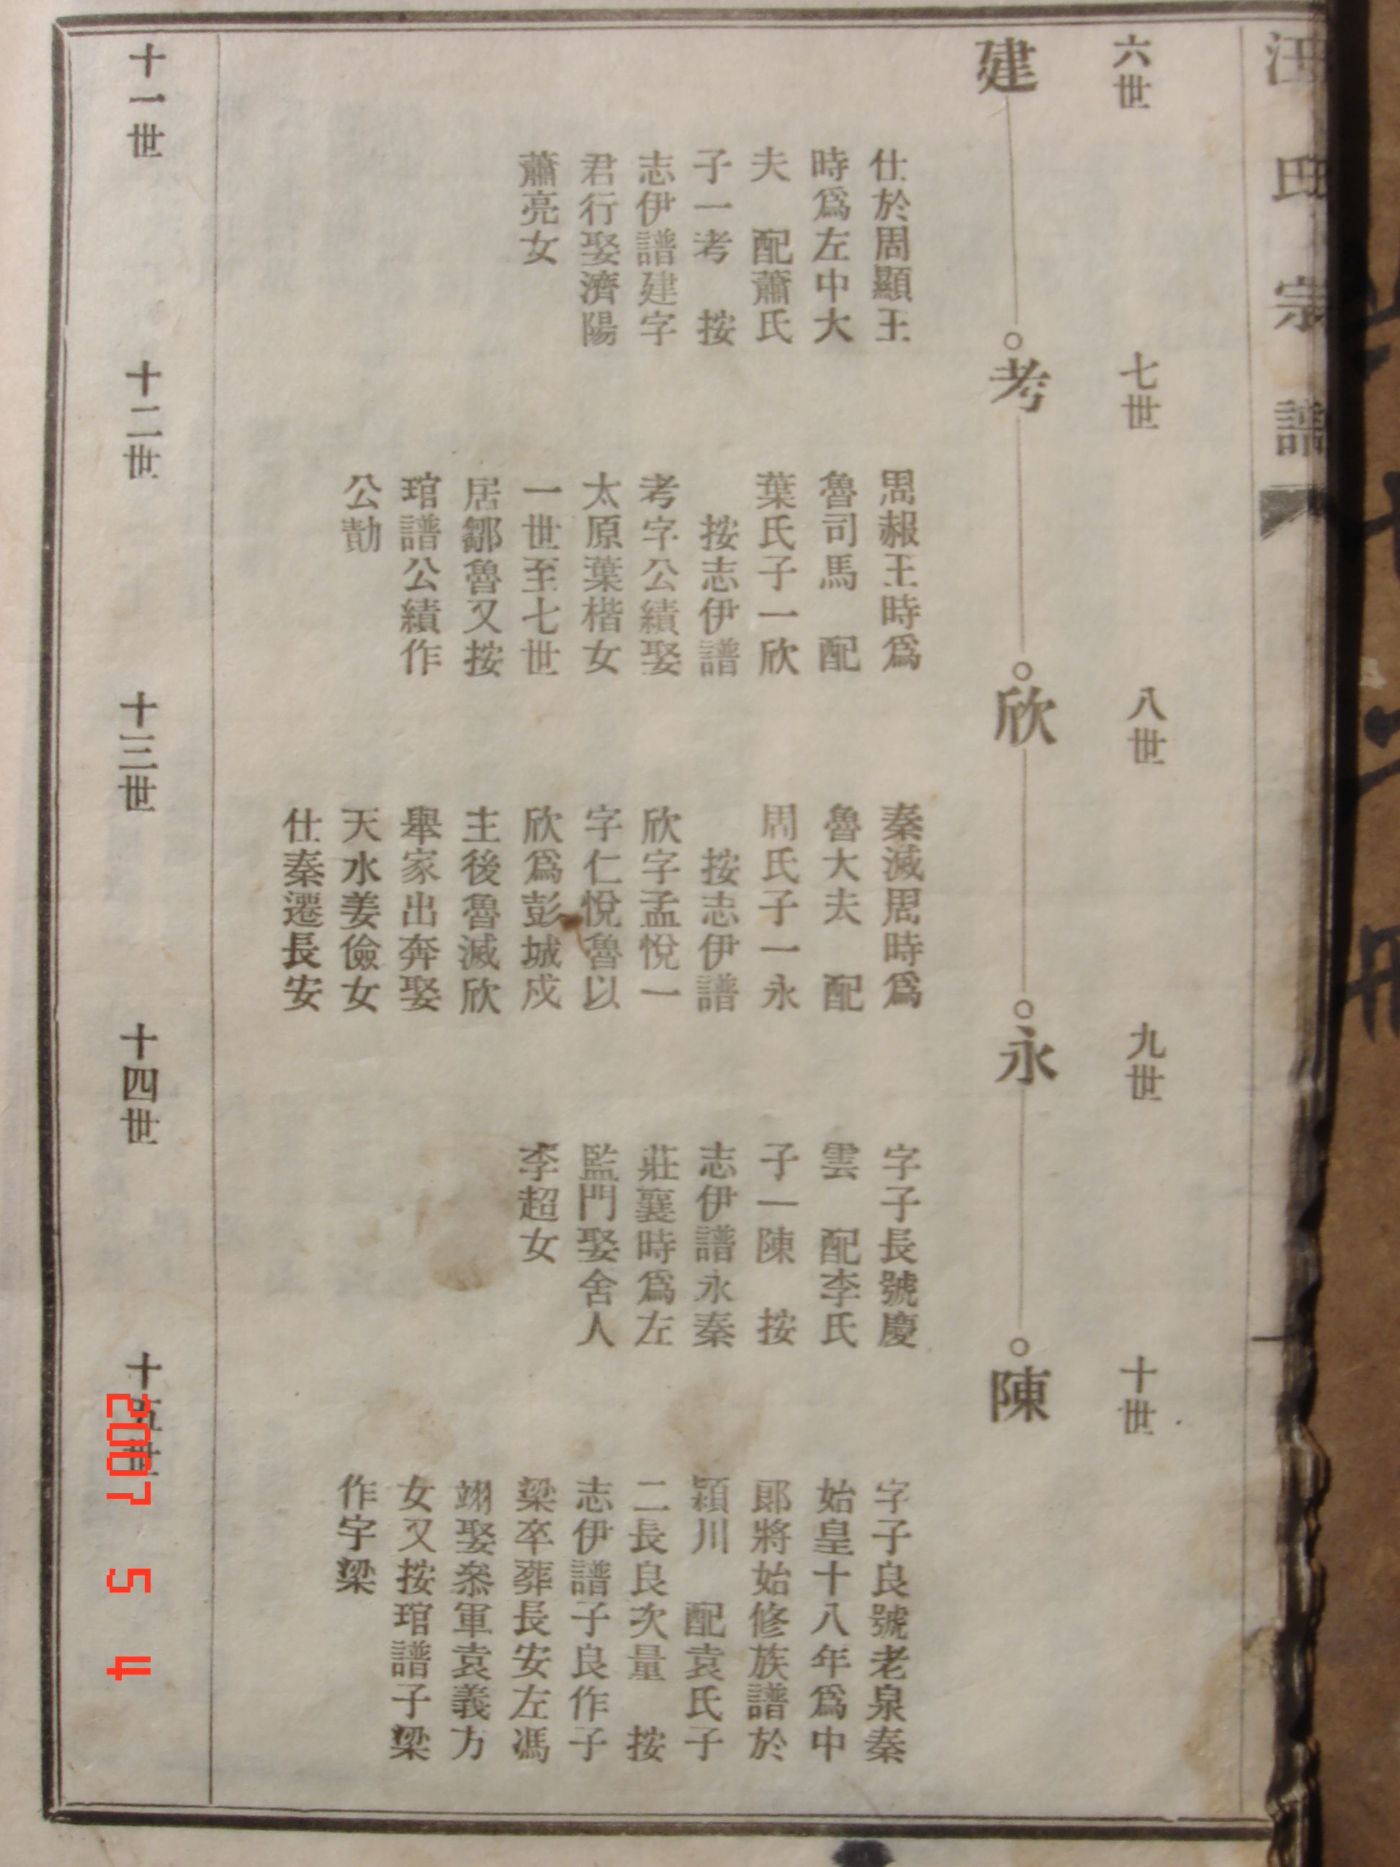 汪氏宗譜
六世
七世
八世
九世
十世
建
考
欣
永
陳
仕於周顯王
時爲左中大
夫　配蕭氏
子一考　按
志伊譜建字
君行娶濟陽
蕭亮女
周赧王時爲
魯司馬　配
葉氏子一欣
按志伊譜
考字公績娶
太原葉楷女
一世至七世
居鄒魯又按
琯譜公績作
公勣
秦滅周時爲
魯大夫　配
周氏子一永
按志伊譜
欣字孟悅一
字仁悅魯以
欣爲彭城戍
主後魯滅欣
舉家出奔娶
天水姜儉女
仕秦遷長安
字子長號慶
雲　配李氏
子一陳　按
志伊譜永秦
莊襄時爲左
監門娶舍人
李超女
字子良號老泉秦
始皇十八年爲中
郞將始修族譜於
潁川　配袁氏子
二長良次量　按
志伊譜子良作子
梁卒葬長安左馮
翊娶叅軍袁義方
女又按琯譜子梁
作宇梁
十一世
十二世
十三世
十四世
十五世
2007 5 4